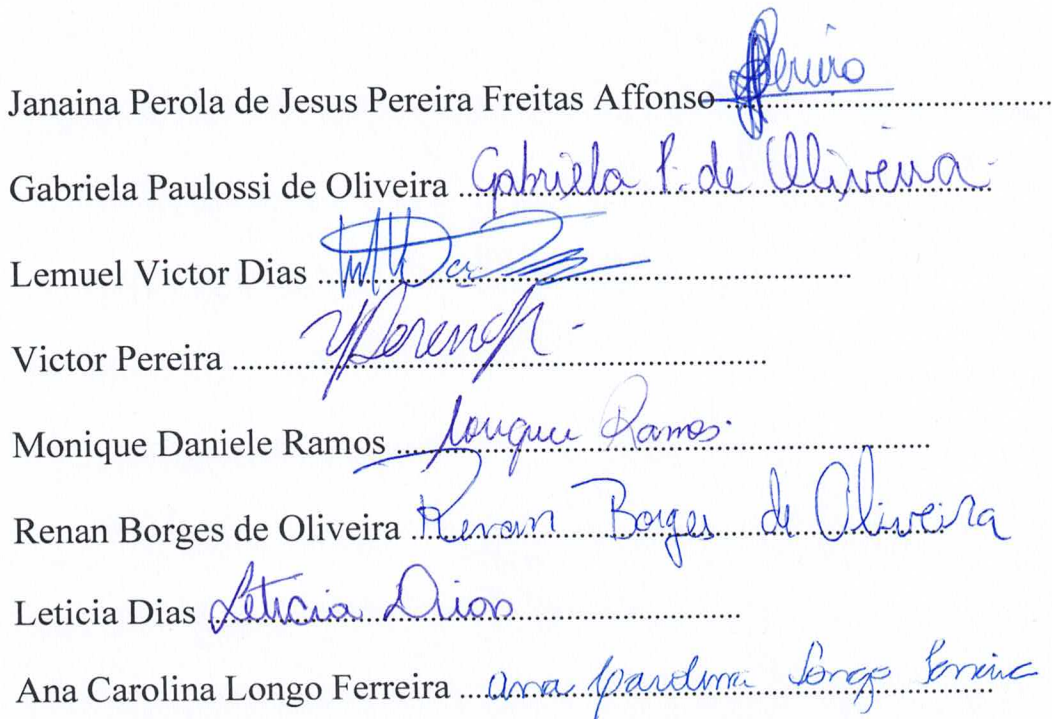 Janaina Perola de Jesus Pereira Freitas Affonso ....................................
Gabriela Paulossi de Oliveira .... Gabriela P. de Oliveira
Lemuel Victor Dias ....................................
Victor Pereira ....................................
Monique Daniele Ramos .... Monique Ramos
Renan Borges de Oliveira .... Renan Borges de Oliveira
Leticia Dias .... Leticia Dias
Ana Carolina Longo Ferreira .... Ana Carolina Longo Ferreira